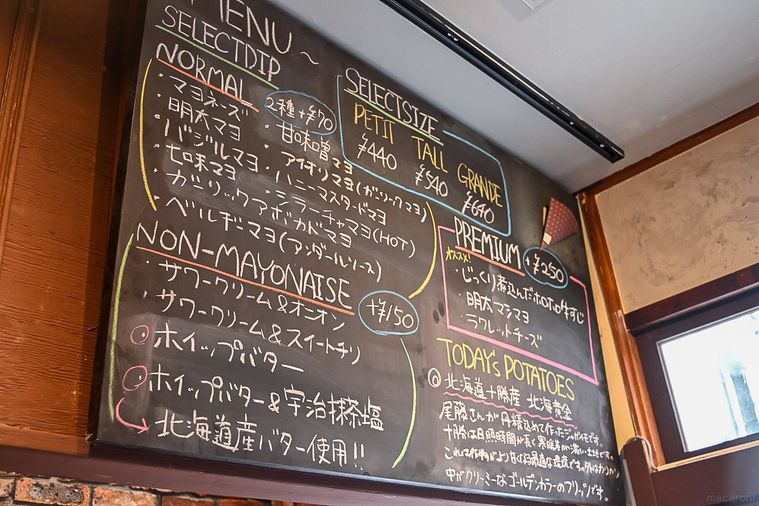 MENU ~
SELECTDIP
NORMAL
2種+¥70
・マヨネーズ
・明太マヨ
・バジルマヨ
・七味マヨ
・ガーリックアボカドマヨ
・ベルギーマヨ(アンダールソース)
・甘味噌マヨ
・アイオリマヨ(ガーリックマヨ)
・ハニーマスタードマヨ
・シラーチャマヨ(HOT)
NON-MAYONAISE
+¥150
・サワークリーム&オニオン
・サワークリーム&スイートチリ
ホイップバター
ホイップバター&宇治抹茶塩
北海道産バター使用!!
SELECTSIZE
PETIT TALL GRANDE
¥440 ¥540 ¥640
PREMIUM +¥250
オススメ!
・じっくり煮込んだホロホロ牛すじ
・明太マラマヨ
・ラクレットチーズ
TODAY's POTATOES
北海道十勝産 北海黄金
尾藤さんが丹精込めて作ったジャガイモです。
十勝は日照時間が長く寒暖差が激しい土地です。
中がクリーミーなゴールデンカラーのフリッツです。
macaroni